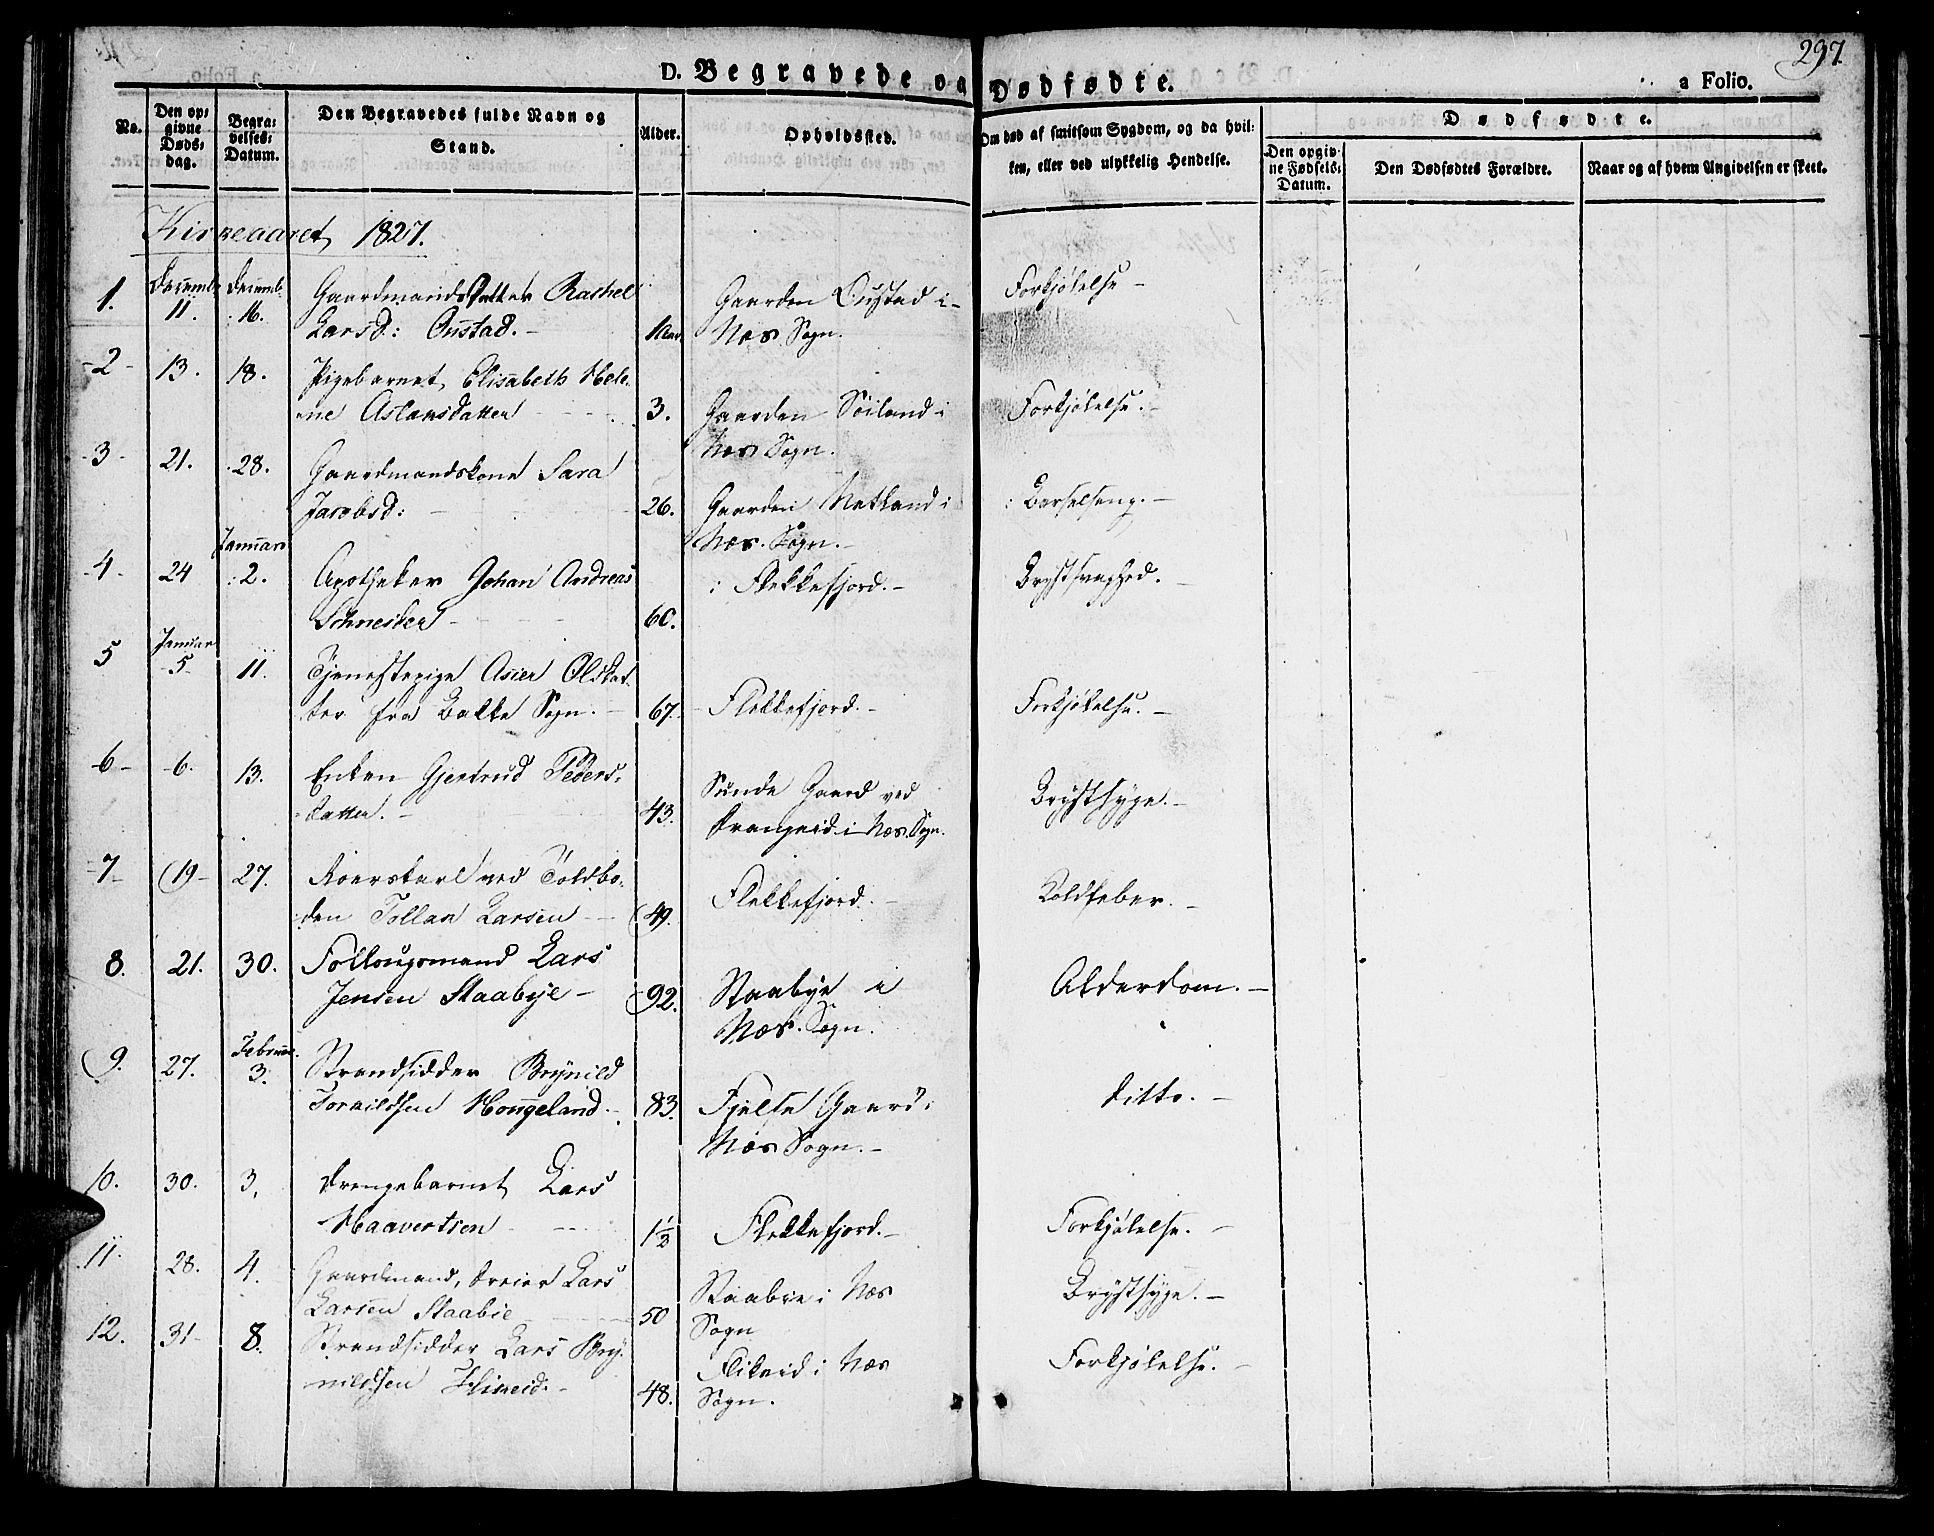 297.
D. Begravede og Dødfødte.
a Folio.
No.
Den op:
givne
Døds:
dag.
Begra:
velses:
Datum.
Den Begravedes fulde Navn og
Stand.
Alder.
Opholdssted.
Om død af smitsom Sygdom, og da hvil:
ken, eller ved ulykkelig Hendelse.
Dødfødte.
Den opgiv:
ne Fødsels:
Datum.
Den Dødfødtes Forældre.
Naar og af hvem Angivelsen er skeet.
Kirkeaaret 1827.
1. Decemb. 11. Decemb. 16. Gaardmandsdatter Rachel
Larsd: Oustad. - 1 Aar. Gaarden Oustad i
Næs Sogn. Forkjølelse -
-2- 13. 18. Pigebarnet Elisabeth Hele-
ne Aslaksdatter 3. Gaarden Söiland i
Næs Sogn. Forkjølelse. -
-3- 21. 28. Gaardmandskone Sara
Jacobsd: 26. Gaarden Netland i
Næs Sogn. - Barselseng. -
-4- 24 Januari 2. Apotheker Johan Andreas
60. i Flekkefjord. - Brystsvaghed. -
5 Januar 5- 11. Tjenestepige Asier Olsdat-
ter fra Bakke Sogn. - 67. Flekkefjord. - Forkjølelse. -
-6- -6. 13. Enken Gjertrud Peders-
datter. - 43. Sunde Gaard ved
Drangeid i Næs Sogn. Brystsyge. -
-7- 19- 27. Roerskarl ved Toldbo-
den Tollak Larsen - 49. Flekkefjord. - Koldfeber. -
8. 21. 30. Follougsmand Lars
Jensen Staabye - 92. Staabye i
Næs Sogn. Alderdom. -
9. 27. Februar. 3. Strandsidder Brynild
Torkildsen Hougeland. - 83. Fjelse Gaard i
Næs Sogn. - ditto. -
10. 30. 3. Drengebarnet Lars
Haavertsen 1½ Flekkefjord. - Forkjølelse. -
11. 28. 4. Gaardmand, Dreier Lars
Larsen Staabie 50 Staabie i Næs
Sogn Brystsyge. -
12. 31- 8. Strandsidder Lars Bry-
nildsen Flikeid. - 48. Flikeid i Næs
Sogn. Forkjølelse. -